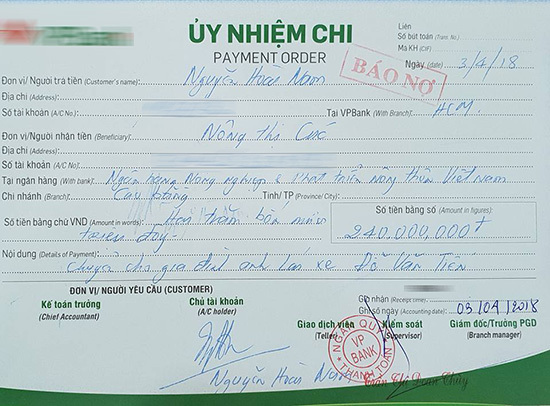 ỦY NHIỆM CHI
PAYMENT ORDER
Liên
Số bút toán (Trans. No.)
Mã KH (CIF)
Ngày (date) 3/4/18
BÁO NỢ
Đơn vị/Người trả tiền (Customer's name): Nguyễn Hoài Nam
Địa chỉ (Address):
Số tài khoản (A/C No.) Tại VPBank (With Branch): HCM.
Đơn vị/Người nhận tiền (Beneficiary): Nông Thị Cúc
Địa chỉ (Address):
Số tài khoản (A/C No)
Tại ngân hàng (With bank): Ngân hàng Nông nghiệp & Phát triển nông thôn Việt Nam
Chi nhánh (Branch): Cao bằng Tỉnh/ TP (Province/ City):
Số tiền bằng chữ VND (Amount in words): Hai trăm bốn mươi Số tiền bằng số (Amount in figures):
triệu đồng. 240,000,000đ
Nội dung (Details of Payment): Chuyển cho gia đình anh lái xe Đỗ Văn Tiến
ĐƠN VỊ/ NGƯỜI YÊU CẦU (CUSTOMER)
Kế toán trưởng Chủ tài khoản
(Chief Accountant) (A/C holder)
Nguyễn Hoài Nam
Ghi nhận
Ghi sổ ngày (Accounting date): 03/04/2018
Giao dịch viên Kiểm soát Giám đốc/Trưởng PGD
(Teller) (Supervisor) (Branch manager)
NGÂN QUỸ
VP
BANK
THANH TOÁN